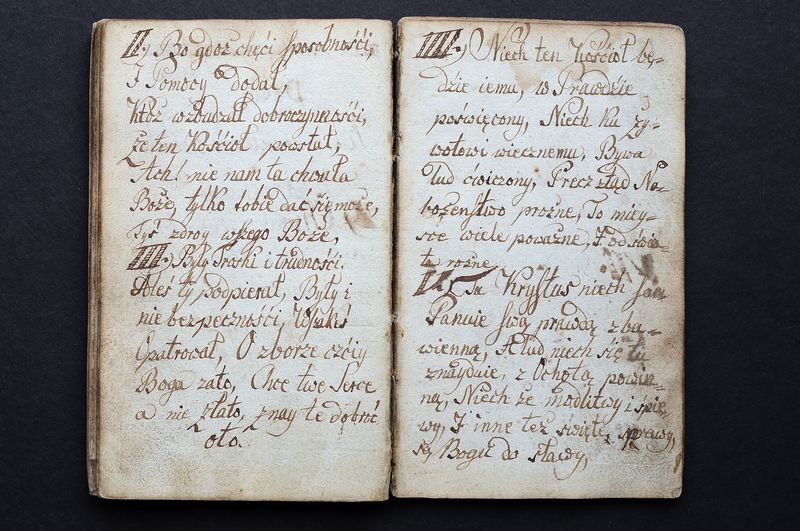 II.) Bo gdoż chęci sposobnośći,
I Pomocy dodał,
Ktoż wzbudzał dobroczynnośći,
że ten Kośćioł powstał,
Ach! nie nam ta chwała
Boże, tylko tobie dać się może,
Tyś zdroy wszego Boże,
IIII.) Były troski i trudnośći.
Aleś ty podpierał, Były i
nie bezpecznośći, Wszakeś
Opatrował, O zborze czćiy
Boga zato, Chce twe Serce
a nie złato, znay te dobroć
oto.
IIII.) Niech ten Kośćioł bę-
dzie iemu, w Prawdzie
poświęcony, Niech ku ży-
wotowi wiecznemu, Bywa
lud ćwiczony, Precz ztąd Na-
bożeństwo prożne, To miey-
sce wiele poważne, I od świa-
ta rożne.
V. Tu Krystus niech sam
Panuie swą prawdą zba-
wienną, A lud niech się tu
znayduie, z Ochotą powin-
ną, Niech że modlitwy i śpie
wy, I inne też święte sprawy,
są Bogu do sławy,